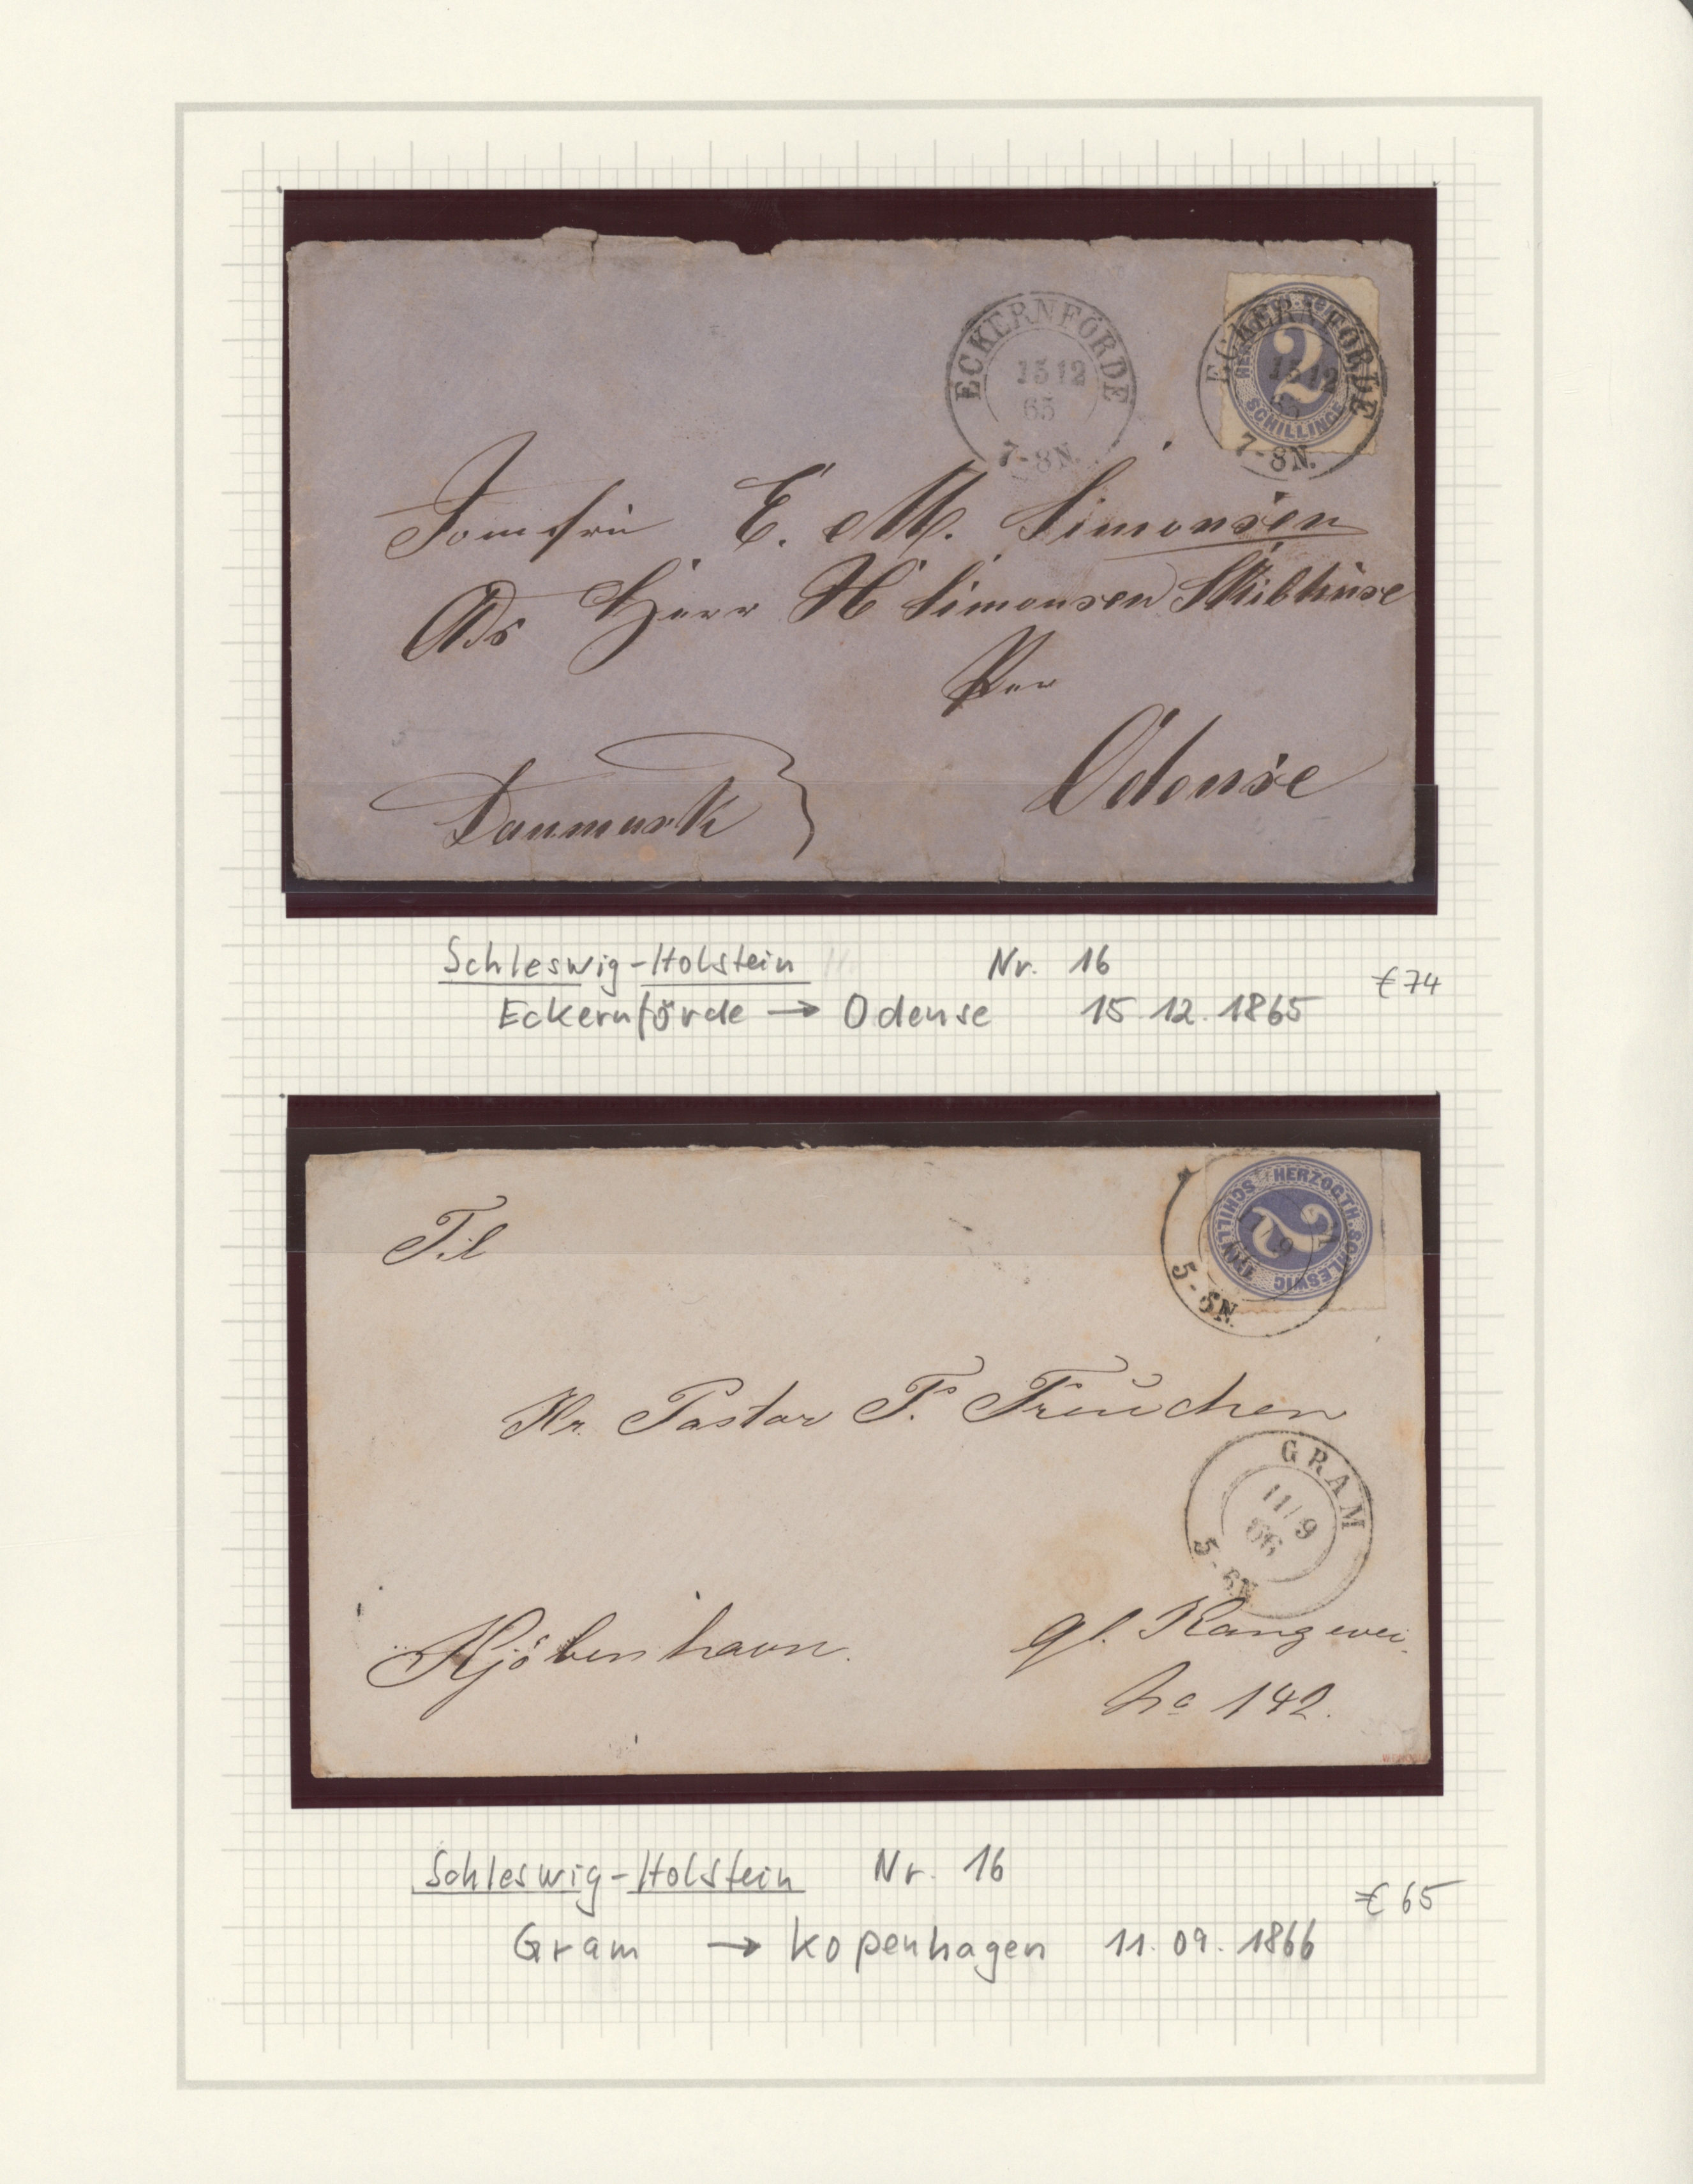 ECKERNFÖRDE
15 12
65
7-8N.
ECKERNFÖRDE
15 12
65
7-8N.
2
SCHILLINGE
Jomfru E. M. Simonsen
Ads Herr H Simonsen Skibhuse
Per
Odense
Danmark
Schleswig-Holstein Nr. 16
€74
Eckernförde → Odense 15.12.1865
HERZOGTH. SCHLESWIG
2
SCHILLINGE
5-6N.
Til
Hr. Pastor F. Freuchen
GRAM
11/9
66
5-6N.
Kjöbenhavn.
gl. Kongevei.
No 142.
Schleswig-Holstein Nr. 16
€65
Gram → Kopenhagen 11.09.1866